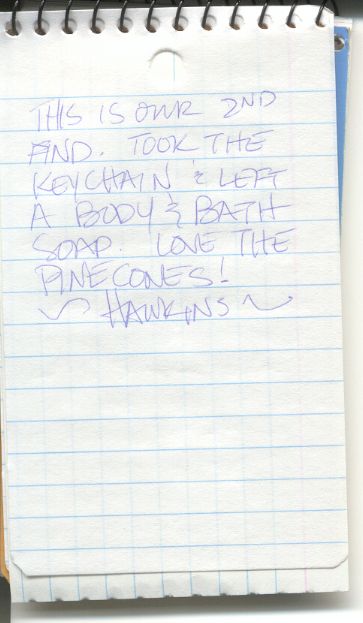 THIS IS OUR 2ND
FIND. TOOK THE
KEYCHAIN & LEFT
A BODY & BATH
SOAP. LOVE THE
PINECONES!
~ HAWKINS ~